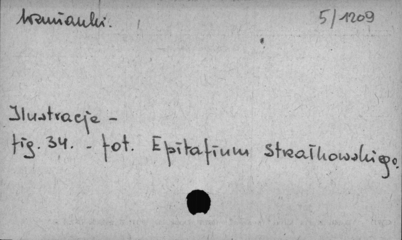 5/1209
Ilustracje -
fig. 34. - fot. Epitafium Strzałkowskiego.